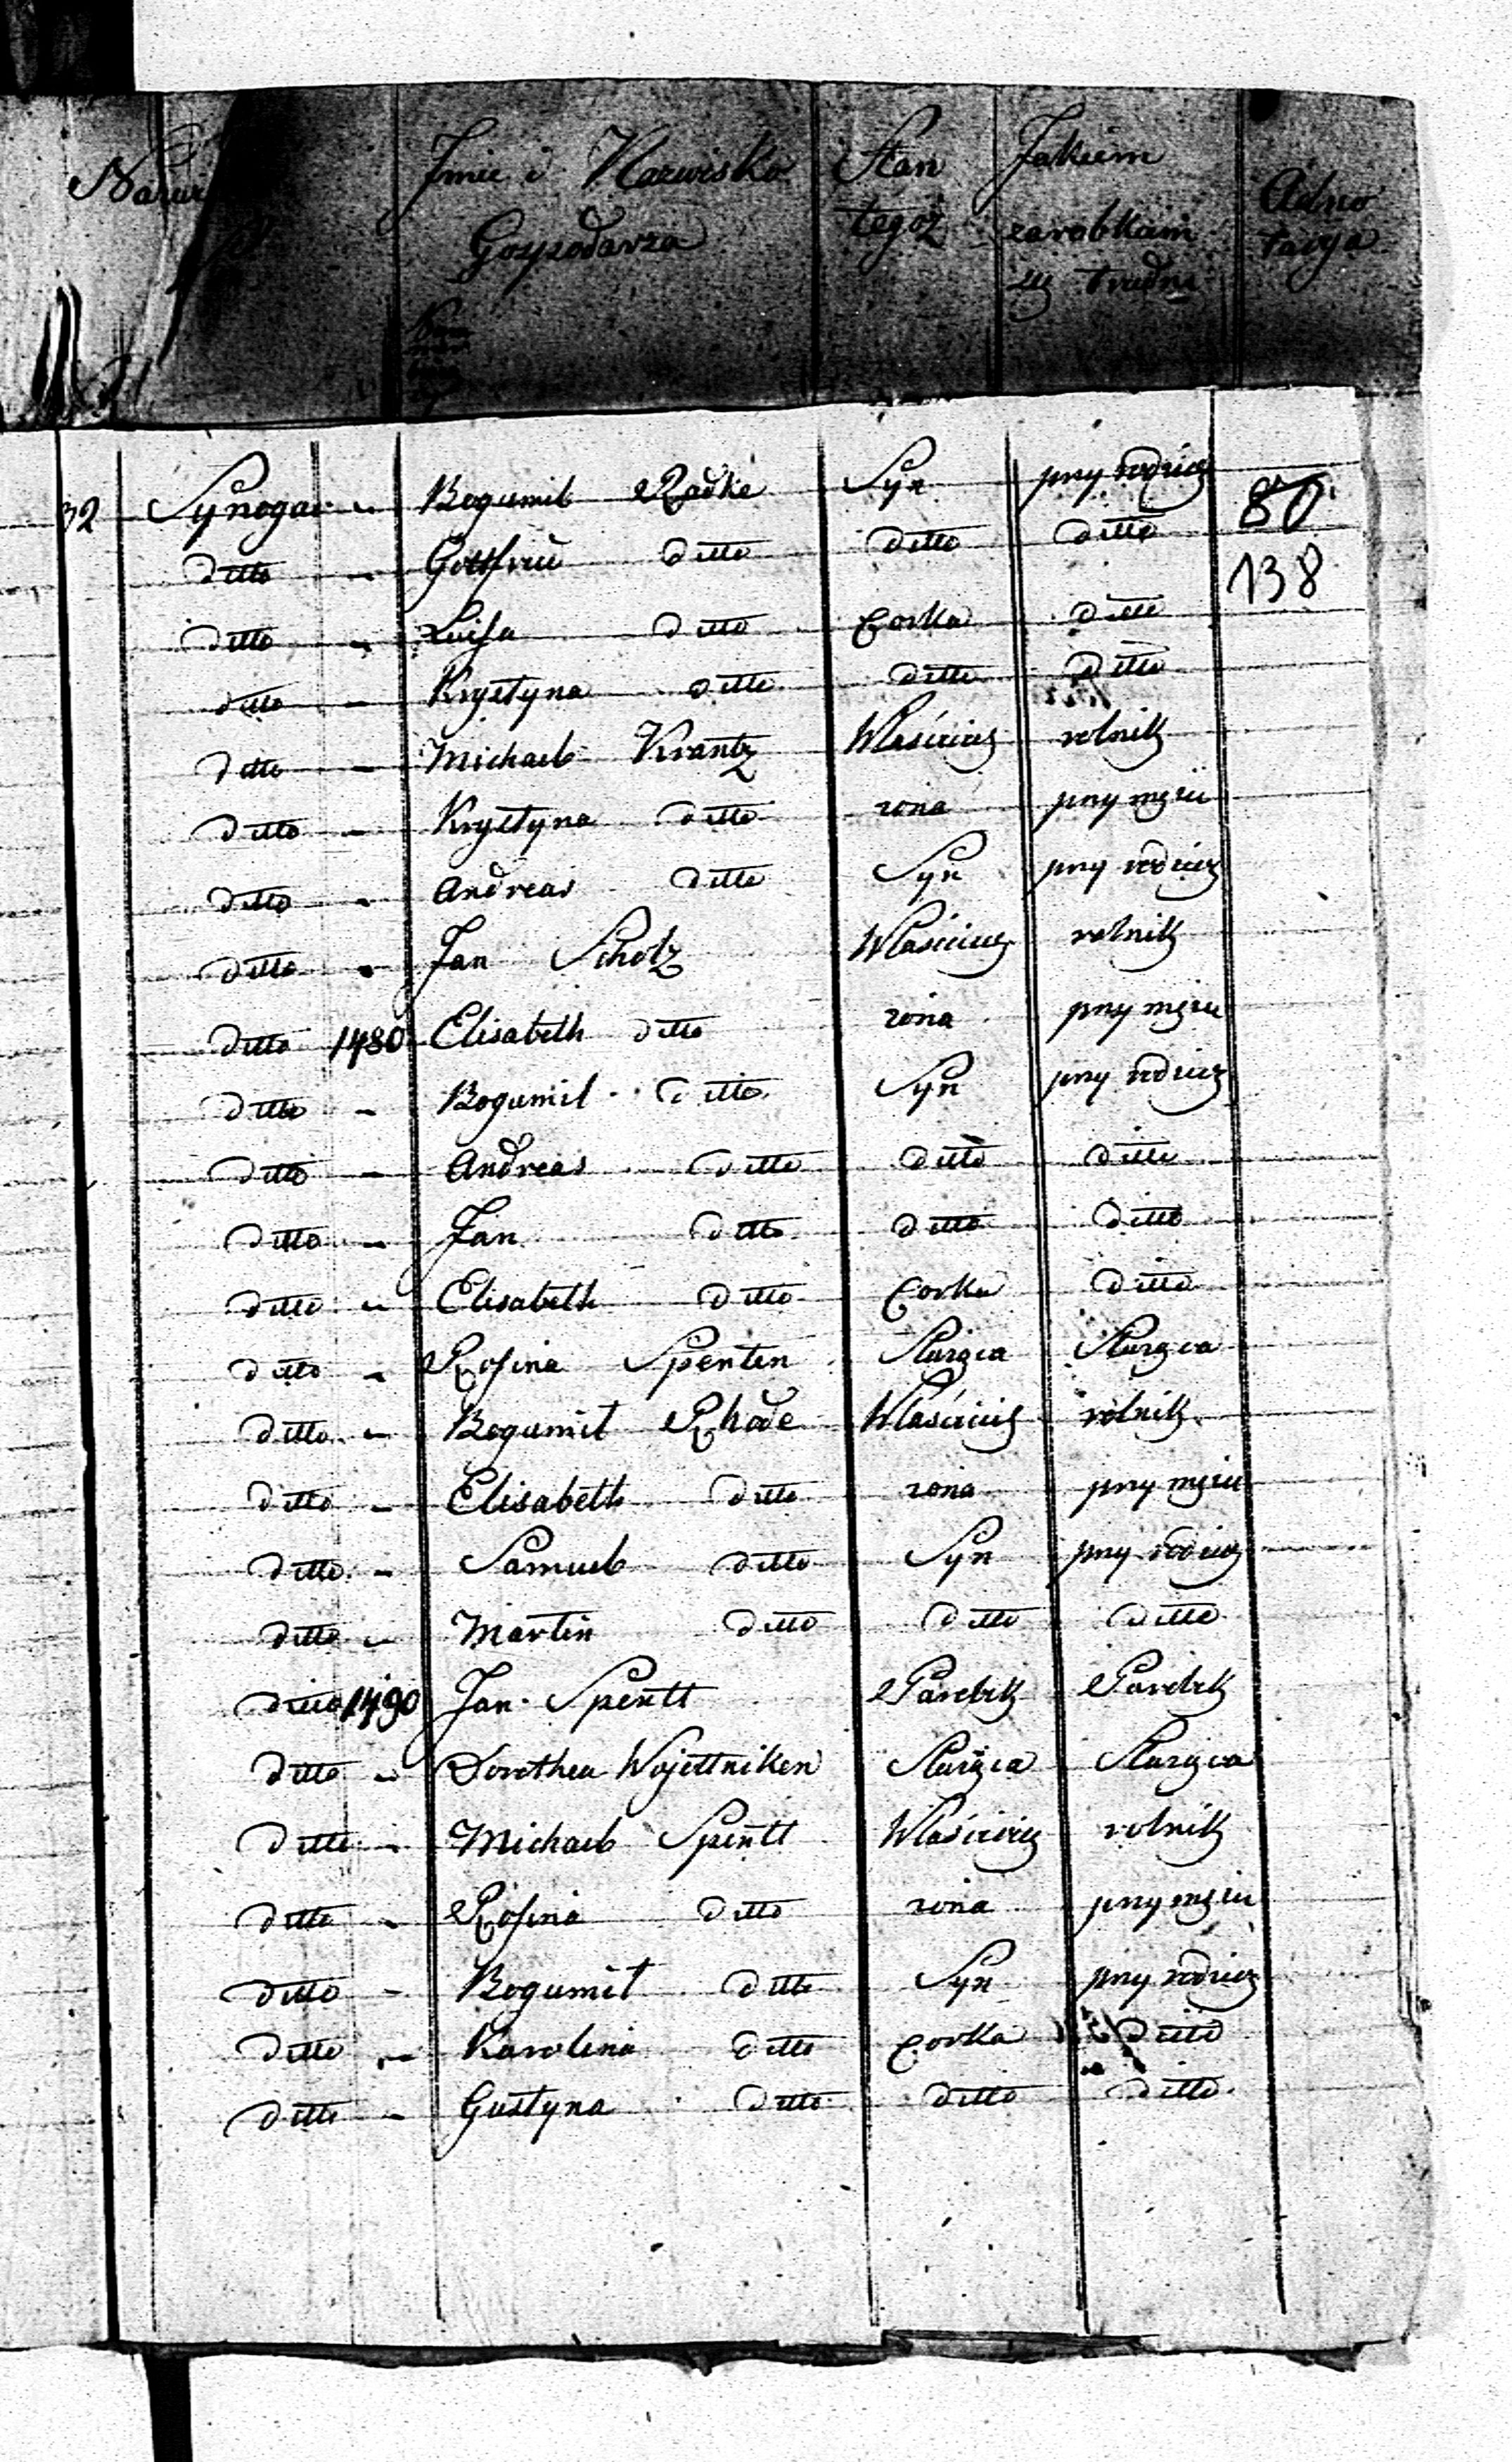 Imie i Nazwisko Gospodarza Stan tegoż Jakiem zarobkiem się trudni Adnotacya
32 Synogac Bogumił Radke Syn przy rodzicz 80
ditto - Gottfried ditto ditto ditto 138
ditto - Luisa ditto Corka ditto
ditto - Krystyna ditto ditto ditto
ditto - Michael Krantz Właściciel rolnik
ditto - Krystyna ditto zona przy mężu
ditto - Andreas ditto Syn przy rodzicz
ditto - Jan Scholz Właściciel rolnik
ditto 1480 Elisabeth ditto zona przy mężu
ditto - Bogumil ditto Syn przy rodzicz
ditto - Andreas ditto ditto ditto
ditto - Jan ditto ditto ditto
ditto - Elisabeth ditto Corka ditto
ditto - Rosina Spenten Służąca Służąca
ditto - Bogumił Rhode Właściciel rolnik
ditto - Elisabeth ditto zona przy mężu
ditto - Samuel ditto Syn przy rodzicz
ditto - Martin ditto ditto ditto
ditto 1490 Jan Spentt Parobek Parobek
ditto - Dorothea Wojettniken Służąca Służąca
ditto - Michael Spentt Właściciel rolnik
ditto - Rosina ditto zona przy mężu
ditto - Bogumił ditto Syn przy rodzicz
ditto - Karolina ditto Corka ditto
ditto - Gustyna ditto ditto ditto